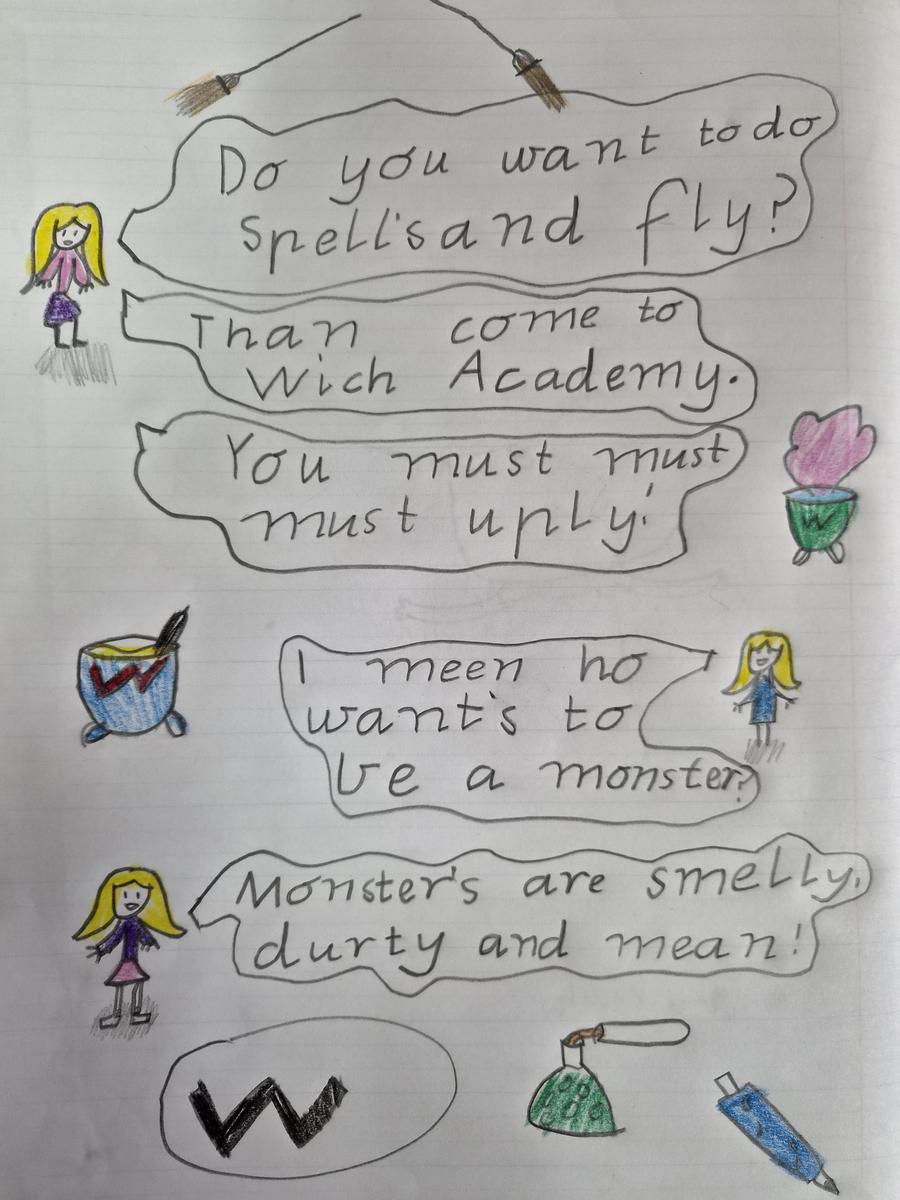 Do you want to do
spell's and fly?
Than come to
Wich Academy.
You must must
must uply!
W
W
I meen ho
want's to
be a monster?
Monster's are smelly,
durty and mean!
W